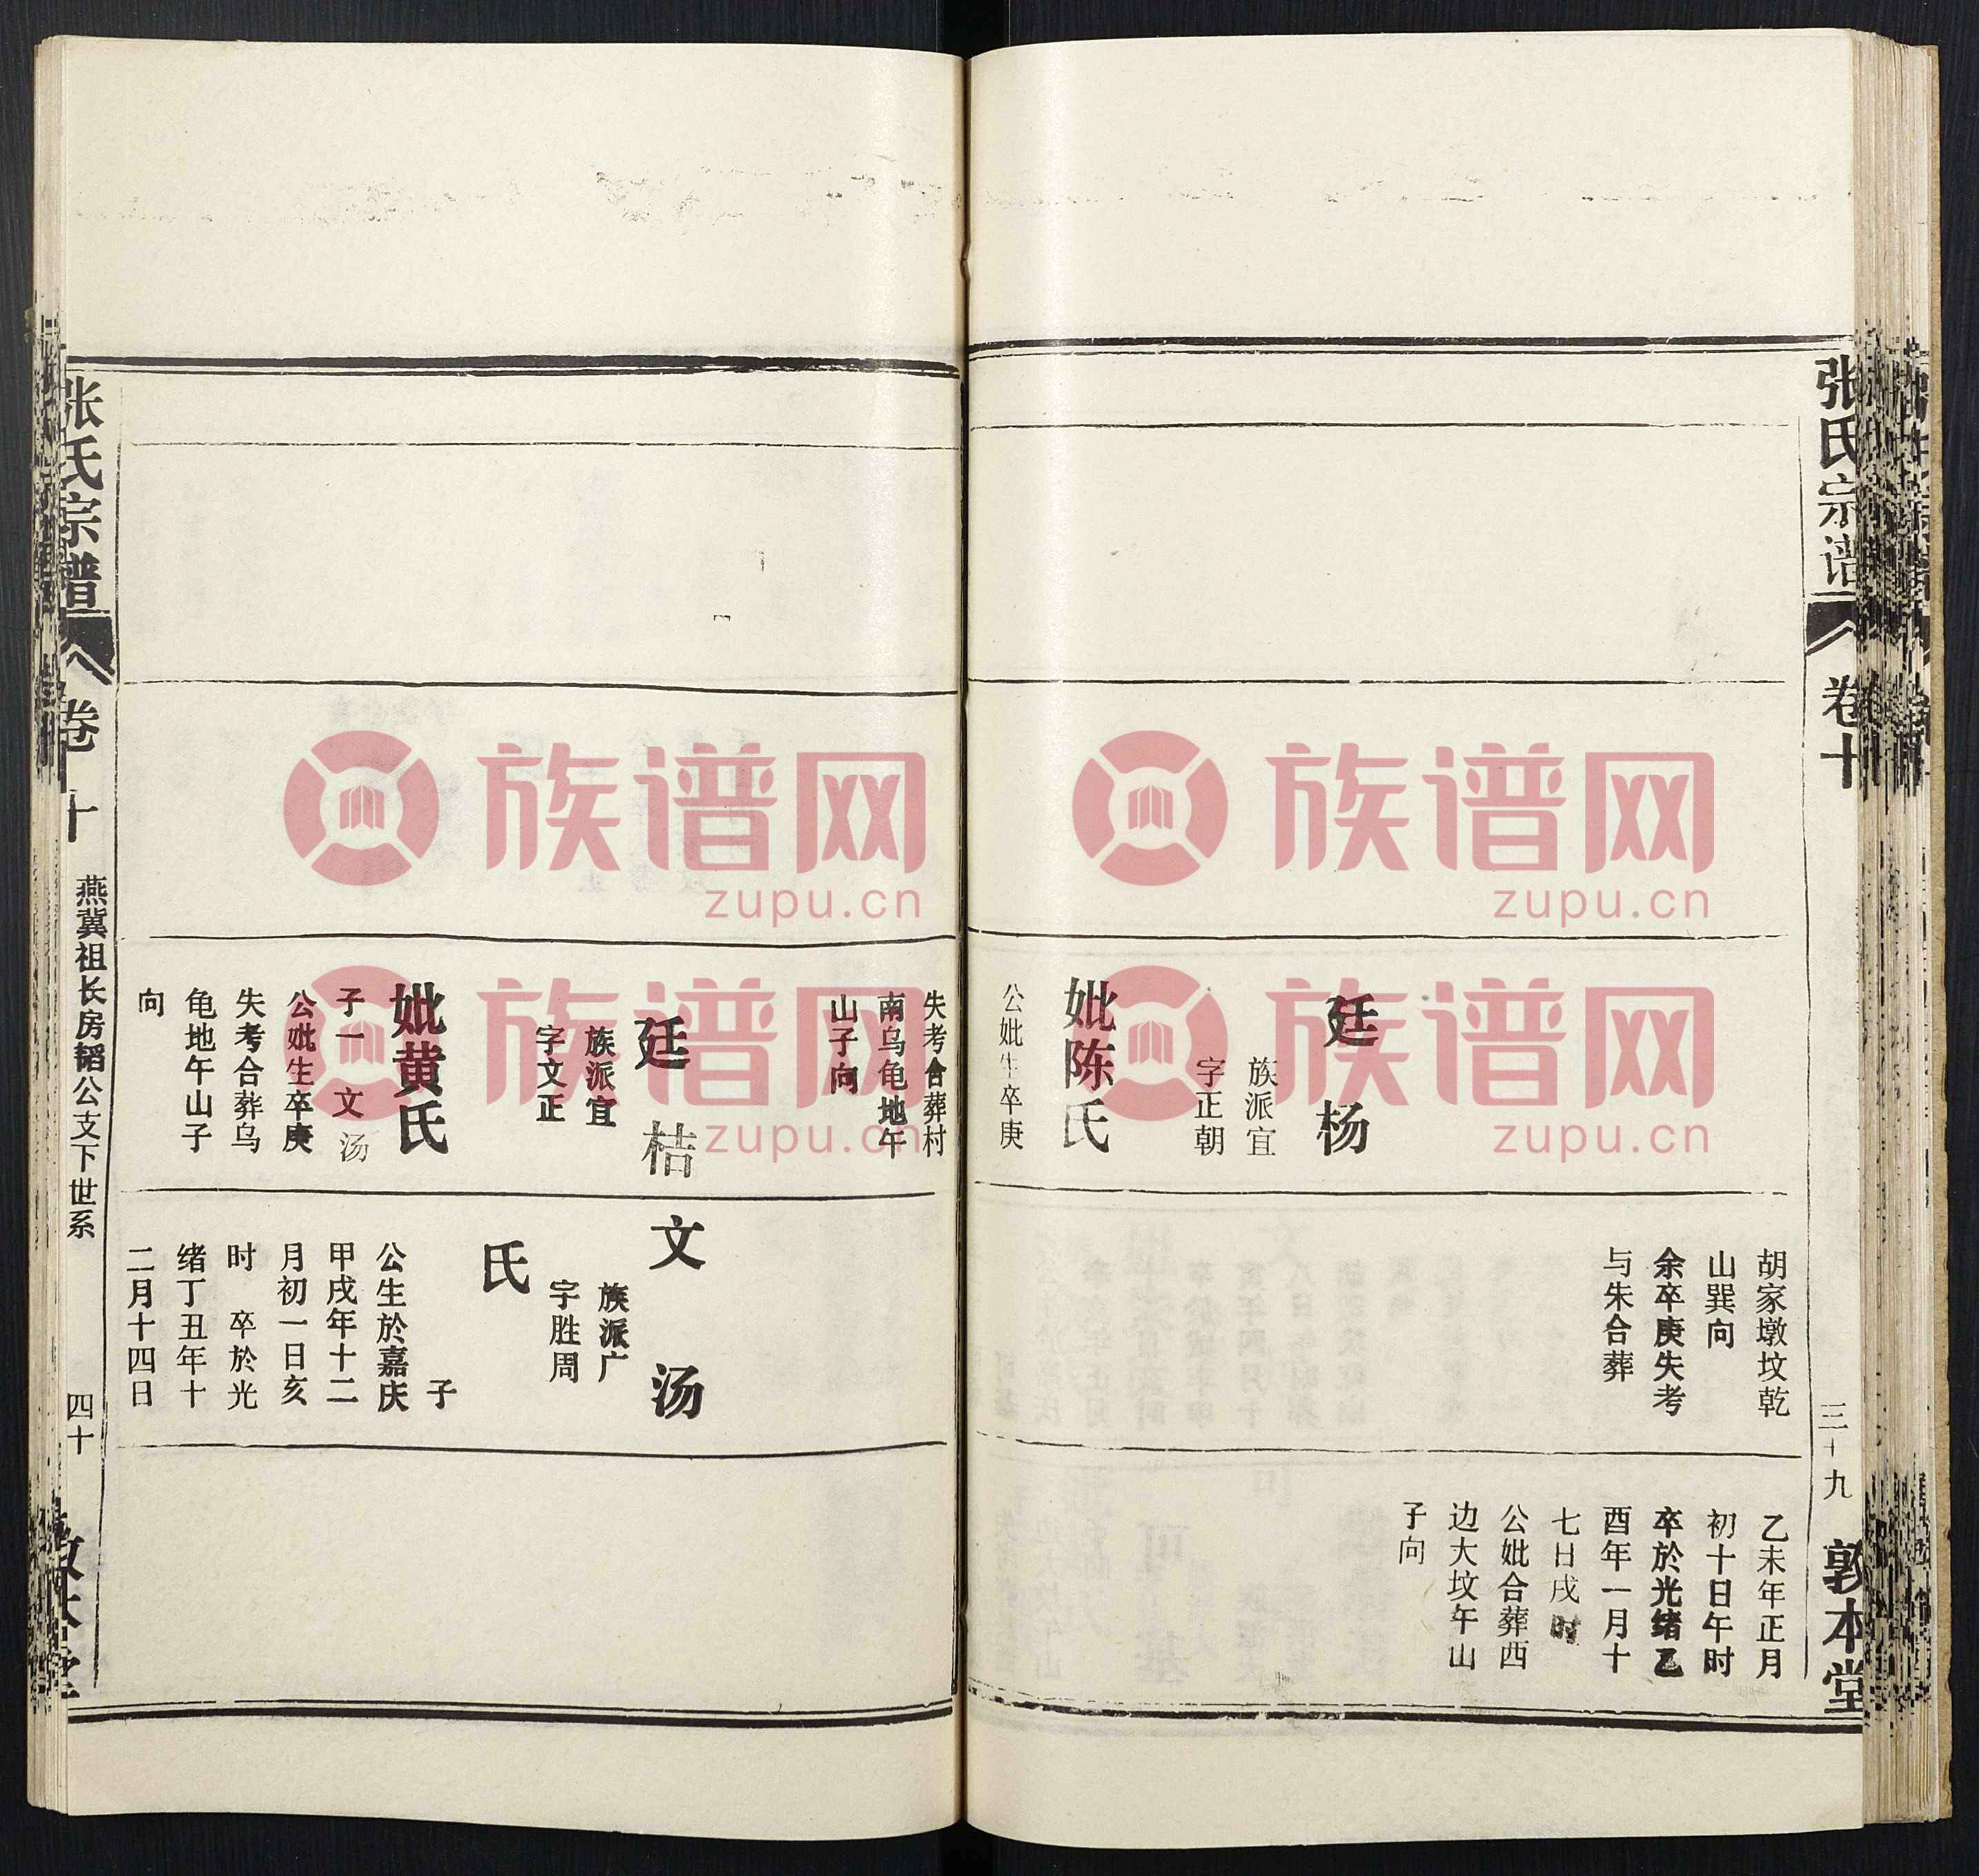 张氏宗谱
卷十
三十九
敦本堂
廷杨
族派宜
字正朝
妣陈氏
公妣生卒庚
胡家墩坟乾
山巽向
余卒庚失考
与朱合葬
乙未年正月
初十日午时
卒於光绪乙
酉年一月十
七日戌时
公妣合葬西
边大坟午山
子向
失考合葬村
南乌龟地午
山子向
廷桔
族派宜
字文正
妣黄氏
子一 文汤
公妣生卒庚
失考合葬乌
龟地午山子
向
文汤
族派广
字胜周
氏
子
公生於嘉庆
甲戌年十二
月初一日亥
时 卒於光
绪丁丑年十
二月十四日
张氏宗谱
卷十
燕冀祖长房韬公支下世系
四十
族谱网
zupu.cn
族谱网
zupu.cn
族谱网
zupu.cn
族谱网
zupu.cn